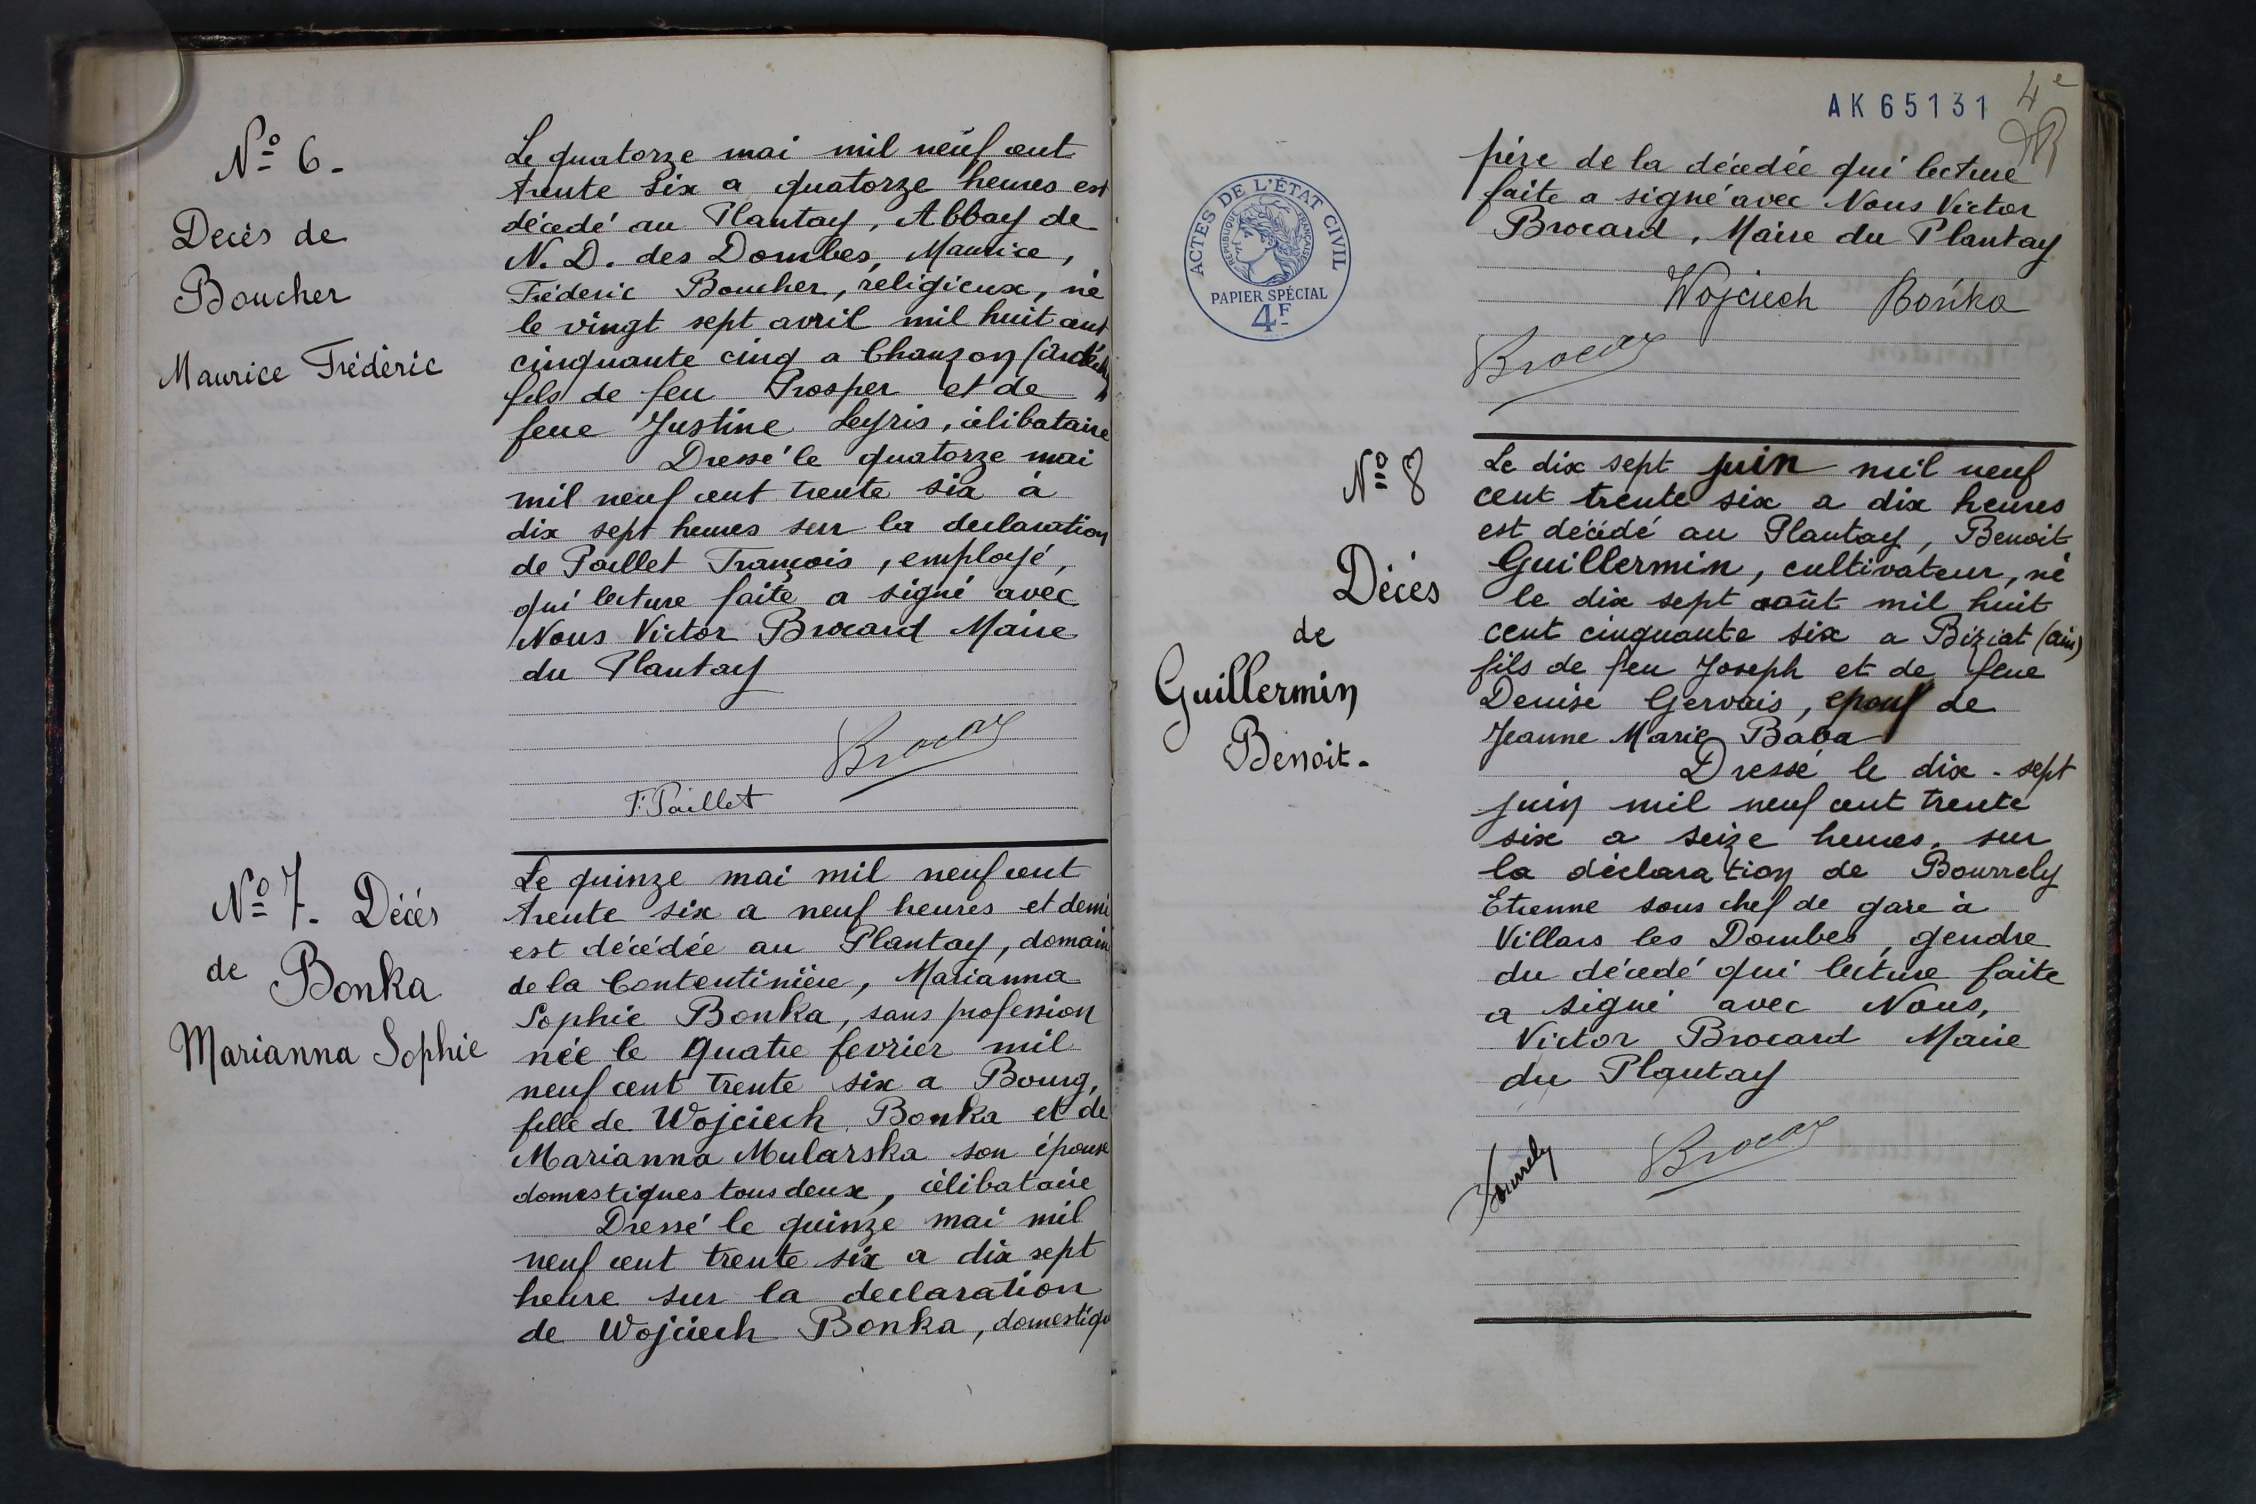 Nº 6.
Decès de
Boucher
Maurice Frédéric
Le quatorze mai mil neuf cent
trente six a quatorze heures est
décedé au Plantay, Abbay de
N. D. des Dombes, Maurice,
Fréderic Boucher, réligieux, né
le vingt sept avril mil huit cent
cinquante cinq a Chauzon (Ardèche)
fils de feu Prosper et de
feue Justine Leyris, célibataire
Dressé le quatorze mai
mil neuf cent trente six à
dix sept heures sur la declaration
de Paillet François, employé,
qui lecture faite a signé avec
Nous Victor Brocard Maire
du Plantay
Brocard
F. Paillet
Nº 7. Décés
de Bonka
Marianna Sophie
Le quinze mai mil neuf cent
trente six a neuf heures et demi
est décédée au Plantay, domaine
de la Contentinière, Marianna
Sophie Bonka, sans profession
née le quatre fevrier mil
neuf cent trente six a Bourg,
fille de Wojciech Bonka et de
Marianna Mularska son épouse
domestiques tous deux, célibataire
Dressé le quinze mai mil
neuf cent trente six a dix sept
heure sur la declaration
de Wojciech Bonka, domestique
AK65131
4e
père de la décedée qui lecture
faite a signé avec Nous Victor
Brocard, Maire du Plantay
Wojciech Bońka
Brocard
ACTES DE L'ÉTAT CIVIL
RÉPUBLIQUE FRANÇAISE
PAPIER SPÉCIAL
4F
Nº 8
Décés
de
Guillermin
Benoit.
Le dix sept juin mil neuf
cent trente six a dix heures
est décédé au Plantay, Benoit
Guillermin, cultivateur, né
le dix sept août mil huit
cent cinquante six a Biziat (Ain)
fils de feu Joseph et de feue
Denise Gervais, epoux de
Jeanne Marie Baba
Dressé le dix-sept
juin mil neuf cent trente
six a seize heures, sur
la déclaration de Bourrely
Etienne sous chef de gare à
Villars les Dombes, gendre
du décedé qui lecture faite
a signé avec Nous,
Victor Brocard Maire
du Plantay
Bourrely
Brocard